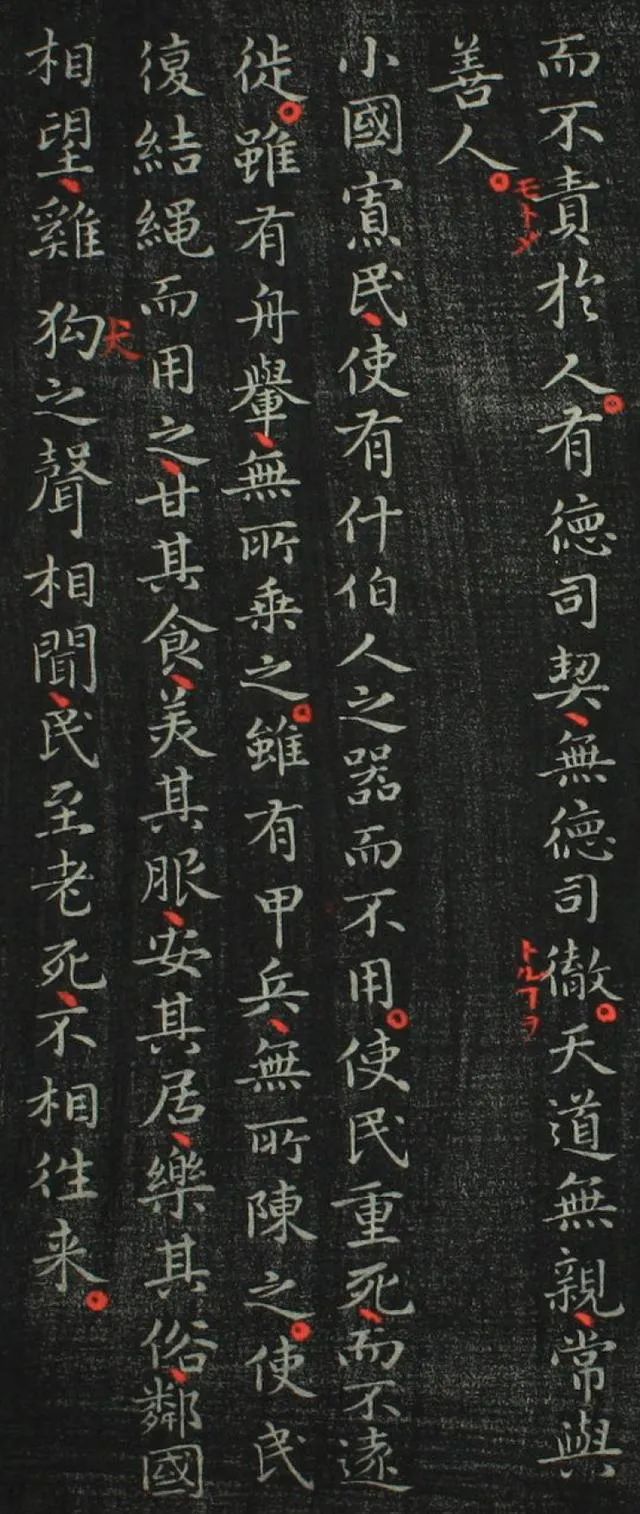 而不責於人。有德司契、無德司徹。天道無親、常與
モトメ
トルヿヲ
善人。
小國寡民、使有什伯人之器而不用。使民重死、而不遠
徙。雖有舟轝、無所乗之。雖有甲兵、無所陳之。使民
復結繩而用之、甘其食、美其服、安其居、樂其俗、鄰國
相望、雞狗之聲相聞、民至老死、不相往来。
犬